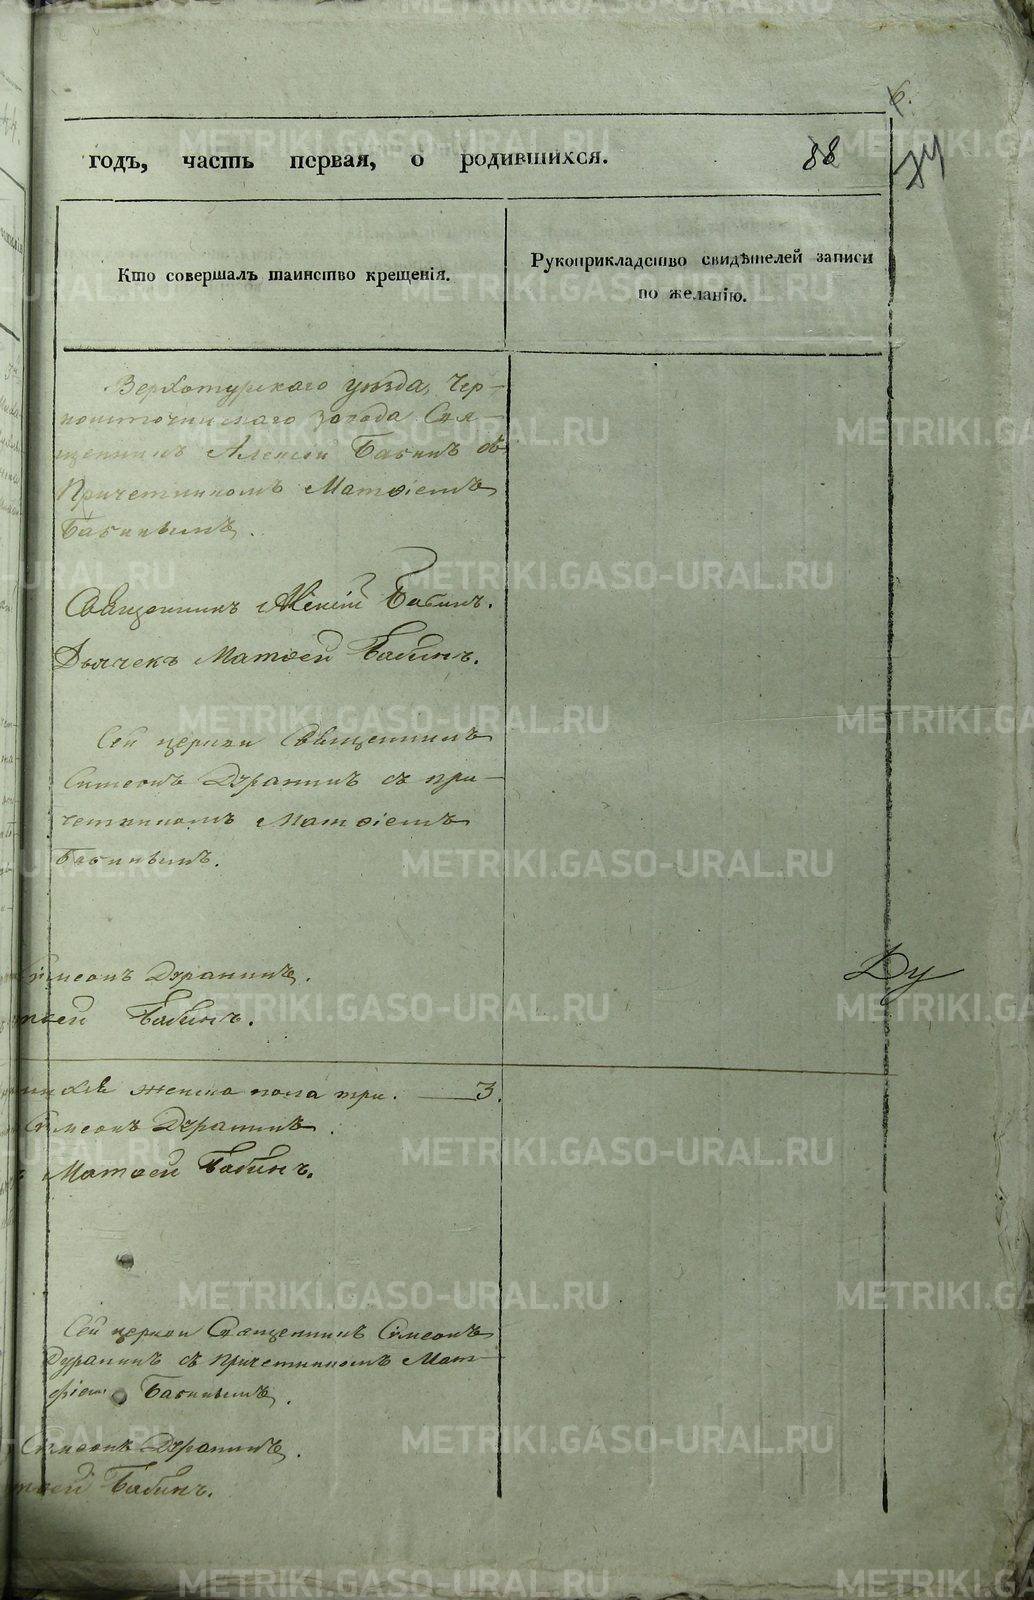 6.
годъ, часть первая, о родившихся. 88
74
Кто совершалъ таинство крещенія.
Рукоприкладство свидѣтелей записи
по желанію.
Верхотурскаго уѣзда, Чер-
ноисточинскаго завода Свя-
щенникъ Алексій Бабинъ съ
Причетникомъ Матѳіемъ
Бабинымъ.
Священникъ Алексій Бабинъ.
Дьячекъ Матѳей Бабинъ.
Сей церкви Священникъ
Симеонъ Дуранинъ съ при-
четникомъ Матѳіемъ
Бабинымъ.
Симеонъ Дуранинъ.
Ду
тѳей Бабинъ.
женска пола три. — 3.
Симеонъ Дуранинъ.
Матѳей Бабинъ.
Сей церкви Священникъ Симеонъ
Дуранинъ съ причетникомъ Мат-
фіемъ Бабинымъ.
Симеонъ Дуранинъ.
тѳей Бабинъ.
METRIKI.GASO-URAL.RU